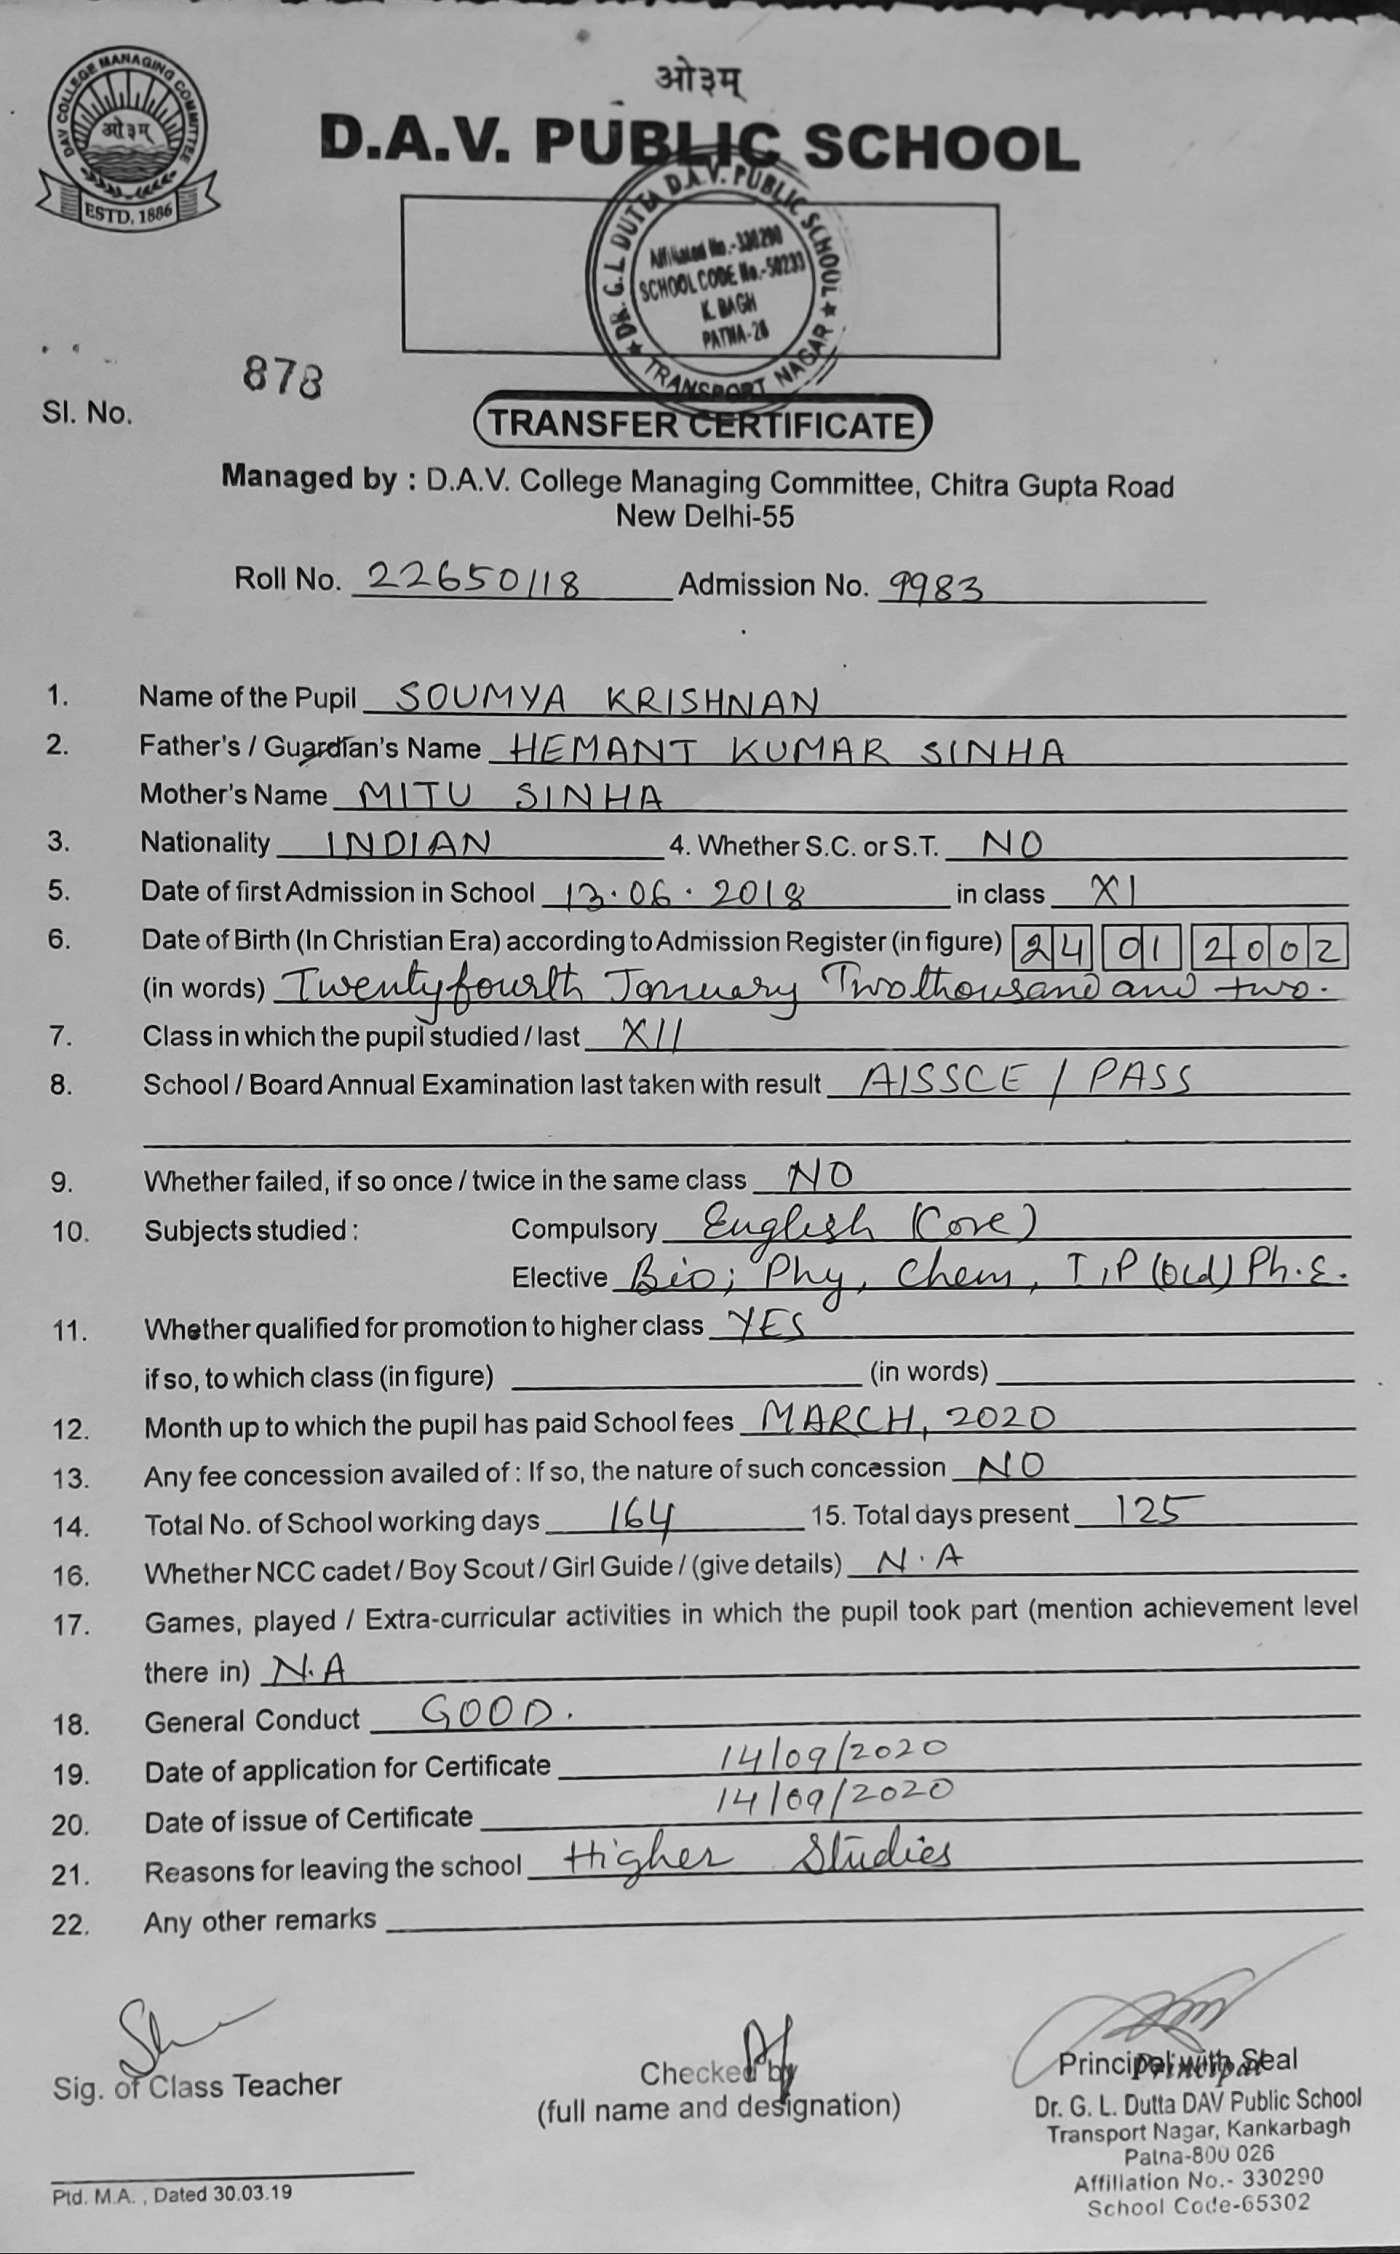 DAV COLLEGE MANAGING COMMITTEE
ओ३म्
ESTD. 1886
ओ३म्
D.A.V. PUBLIC SCHOOL
DR. G.L DUTTA D.A.V. PUBLIC SCHOOL
Affiliated No.-330290
SCHOOL CODE No.-50233
K. BAGH
PATNA-26
TRANSPORT NAGAR
878
Sl. No.
TRANSFER CERTIFICATE
Managed by : D.A.V. College Managing Committee, Chitra Gupta Road
New Delhi-55
Roll No. 22650118 Admission No. 9983
1. Name of the Pupil SOUMYA KRISHNAN
2. Father's / Guardian's Name HEMANT KUMAR SINHA
Mother's Name MITU SINHA
3. Nationality INDIAN 4. Whether S.C. or S.T. NO
5. Date of first Admission in School 13.06.2018 in class XI
6. Date of Birth (In Christian Era) according to Admission Register (in figure) 24 01 2002
(in words) Twentyfourth January Two thousand and two.
7. Class in which the pupil studied / last XII
8. School / Board Annual Examination last taken with result AISSCE / PASS
9. Whether failed, if so once / twice in the same class NO
10. Subjects studied : Compulsory English (Core)
Elective Bio; Phy, Chem, I,P (Old) Ph.E.
11. Whether qualified for promotion to higher class YES
if so, to which class (in figure) (in words)
12. Month up to which the pupil has paid School fees MARCH, 2020
13. Any fee concession availed of : If so, the nature of such concession NO
14. Total No. of School working days 164 15. Total days present 125
16. Whether NCC cadet / Boy Scout / Girl Guide / (give details) N.A
17. Games, played / Extra-curricular activities in which the pupil took part (mention achievement level
there in) N.A
18. General Conduct GOOD.
19. Date of application for Certificate 14/09/2020
20. Date of issue of Certificate 14/09/2020
21. Reasons for leaving the school Higher Studies
22. Any other remarks
Sig. of Class Teacher
Checked by
(full name and designation)
Principal with Seal
Principal
Dr. G. L. Dutta DAV Public School
Transport Nagar, Kankarbagh
Patna-800 026
Affiliation No.- 330290
School Code-65302
Ptd. M.A. , Dated 30.03.19